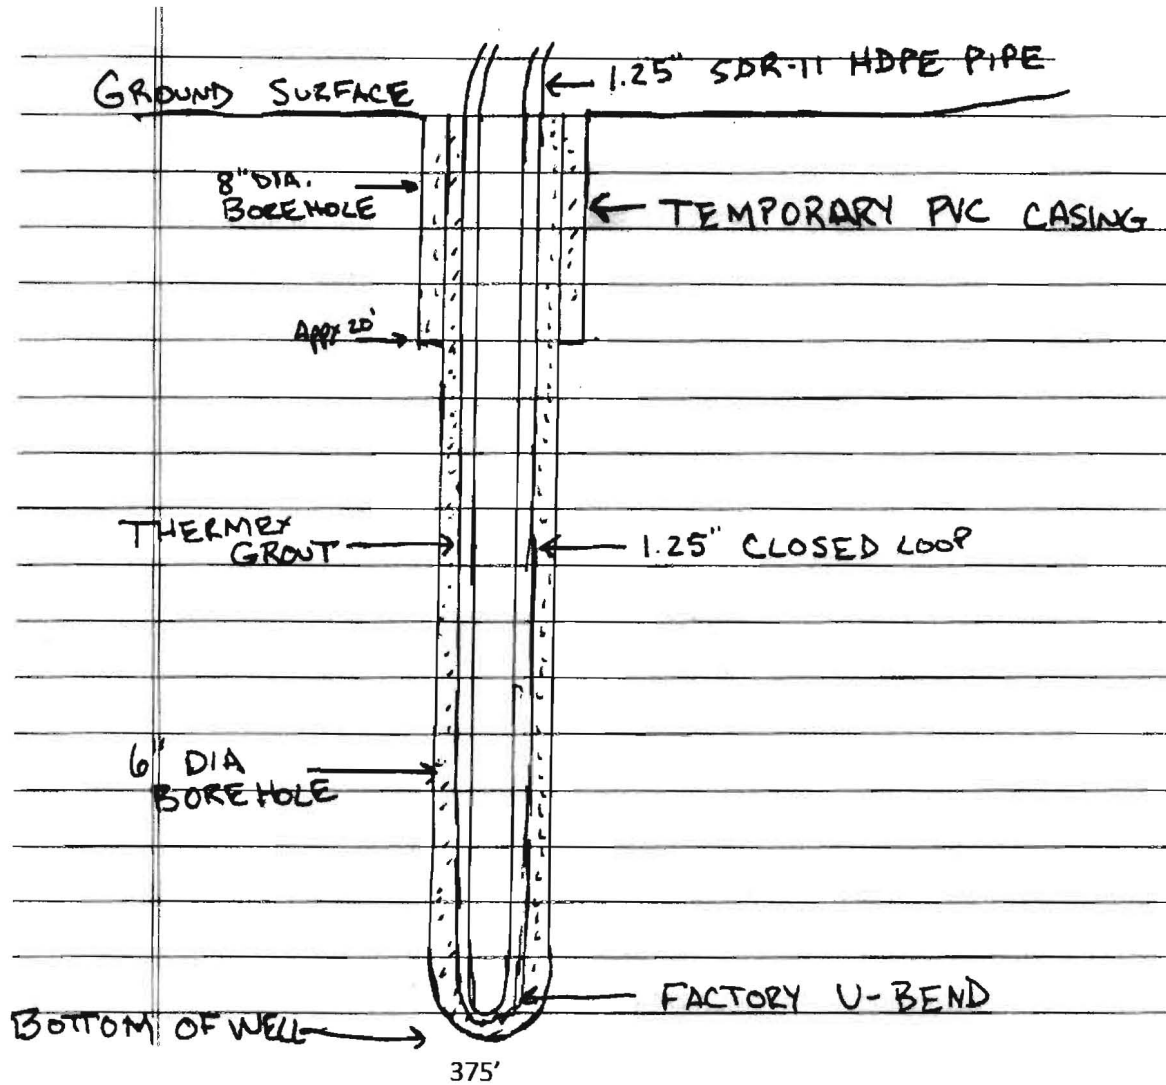 1.25" SDR-11 HDPE PIPE
GROUND SURFACE
8" DIA.
BOREHOLE
TEMPORARY PVC CASING
Appx 20'
THERMEX
GROUT
1.25" CLOSED LOOP
6" DIA
BOREHOLE
FACTORY U-BEND
BOTTOM OF WELL
375'